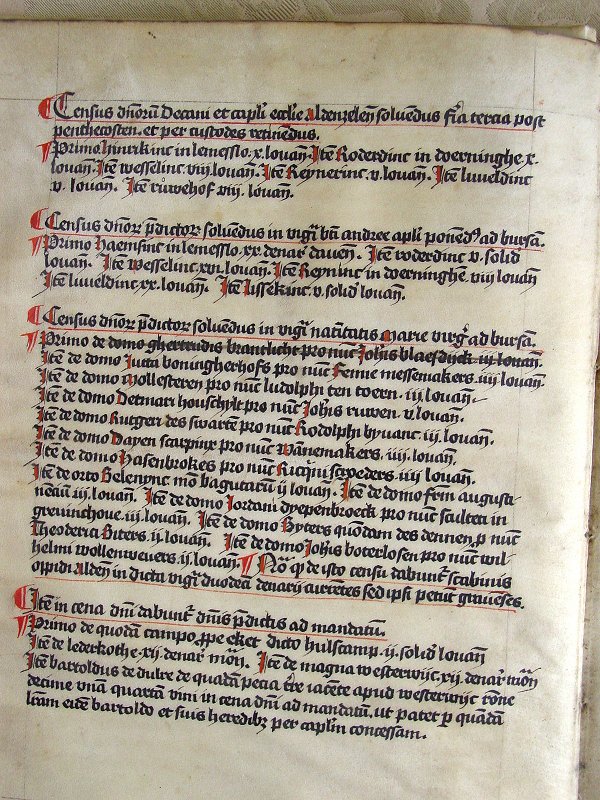 Census dn̄orū Decani et capl̄i eccl̄ie Aldenzelen̄ soluendus fr̄a tercia post
penthecosten. et per custodes retinēdus.
Primo hinrikinc in lemesslo .x. louan̄. Itē Roderdinc in doerninghe x.
louan̄. Itē wesselinc. viij. louan̄. Itē Reynerinc .v. louan̄. Itē luueldinc
v. louan̄. Itē ruwehof viij. louan̄.
Census dn̄oꝝ p̄dictoꝝ soluendus in vigīa bt̄i andree apl̄i ponend⁹ ad bursā.
Primo haemsinc in lemesslo .xx. denar̄ dauen̄. Itē roderdinc .v. solid̄
louan̄. Itē wesselinc. xvi. louan̄. Itē Reyninc in doerninghe. viij louan̄
Itē luueldinc. xx. louan̄. Itē Lissekinc. v. solid̄ louan̄.
Census dn̄oꝝ p̄dictoꝝ soluendus in vigīa natiuitatis Marie virḡ ad bursā.
Primo de domo ghertrudis brantlicht pro nūc Joh̄is blaesdijck iij. louan̄.
Itē de domo Jutta boningherhofs pro nūc Fenne messemakers. iiij. louan̄.
Itē de domo Mollesteren pro nūc ludolphi ten toern. iij. louan̄
Itē de domo Detmari houschylt pro nūc Joh̄is ruwen. v. louan̄.
Itē de domo Rutgeri des swartē pro nūc Rodolphi byuanc. iij. louan̄.
Itē de domo Dayen scarpinx pro nūc wānemakers. iiij. louan̄.
Itē de domo hasenbrokes pro nūc Ricq̄ini scroeders. iiij louan̄.
Itē de orto Belenync mō bagutarū ij louan̄. Itē de domo frm̄ augusti-
nēsiū iij. louan̄. Itē de domo Jordani dyepenbroeck pro nūc sculteti in
greuinchoue. iij. louan̄. Itē de domo Byters quōdam des dennen. p nūc
Theoderici Biters. ij. louan̄. Itē de domo Joh̄is boterlosen pro nūc wil-
helmi wollenweuers. ij. louan̄. No͞ qꝫ de isto censu dabunt᷑ scabinis
oppidi Aldēn̄ in dicta vigīa duodecī denarij currētes sed ipsi petūt grauēses.
Itē in cena dn̄i dabunt᷑ dn̄is p̄dictis ad mandatū.
Primo de quodā campo ꝓpe eket dicto hulscamp. ij. solid̄ louan̄
Itē de lederkothe. xij. denar̄ mōn̄. Itē de magna westerwijc. xij. denar̄ mōn̄
Itē bartoldus de dulre de quadā pecia t̄re iacēte apud westerwijc rōne
decime vnā quartā vini in cena dn̄i ad mandatū. ut patet p̄ quādā
lr̄am eidē bartoldo et suis heredibꝫ per capl̄m concessam.